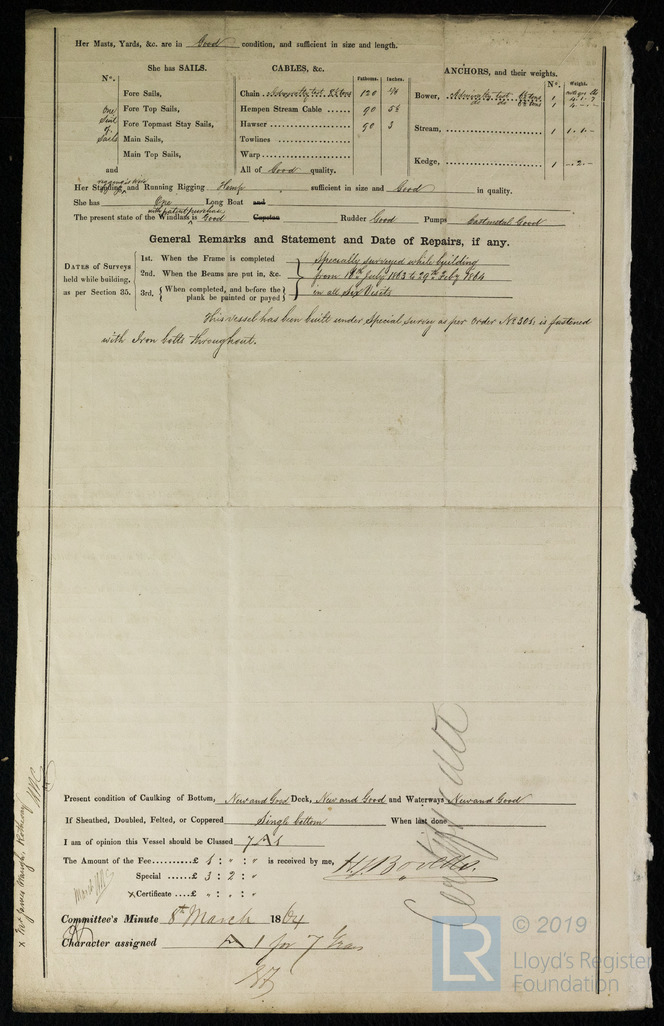 Her Masts, Yards, &c. are in Good condition, and sufficient in size and length.
She has SAILS.
N°.
One
Suit
of
Sails
Fore Sails,
Fore Top Sails,
Fore Topmast Stay Sails,
Main Sails,
Main Top Sails,
and
CABLES, &c.
Fathoms. Inches.
Chain 120
Hempen Stream Cable ...... 90
Hawser .................. 90 3
Towlines
Warp
All of Good quality.
ANCHORS, and their weights.
N°. Weight.
Bower, 1
1
Stream, 1
Kedge, 1
Her Standing and Running Rigging Hemp sufficient in size and Good in quality.
She has One Long Boat and
with patent purchase
The present state of the Windlass is Good Capstan Rudder Good Pumps Good
General Remarks and Statement and Date of Repairs, if any.
DATES of Surveys held while building, as per Section 35.
1st. When the Frame is completed
2nd. When the Beams are put in, &c.
3rd. { When completed, and before the plank be painted or payed }
Specially surveyed while building
from 18th July 1863 to 29th Feby 1864
in all Six Visits
This vessel has been built under Special survey as per order No 306, is fastened
with Iron bolts throughout.
Present condition of Caulking of Bottom, New and Good Deck, New and Good and Waterways New and Good
If Sheathed, Doubled, Felted, or Coppered Single bottom When last done
I am of opinion this Vessel should be Classed 7 A 1
The Amount of the Fee.........£ 1 : " : " is received by me,
Special ......£ 3 : 2 : "
x Certificate ....£ " : " : "
Certificate
Committee's Minute 8th March 1864
Character assigned A 1 for 7 Years
x Mr James Rothesay
LR
© 2019
Lloyd's Register
Foundation